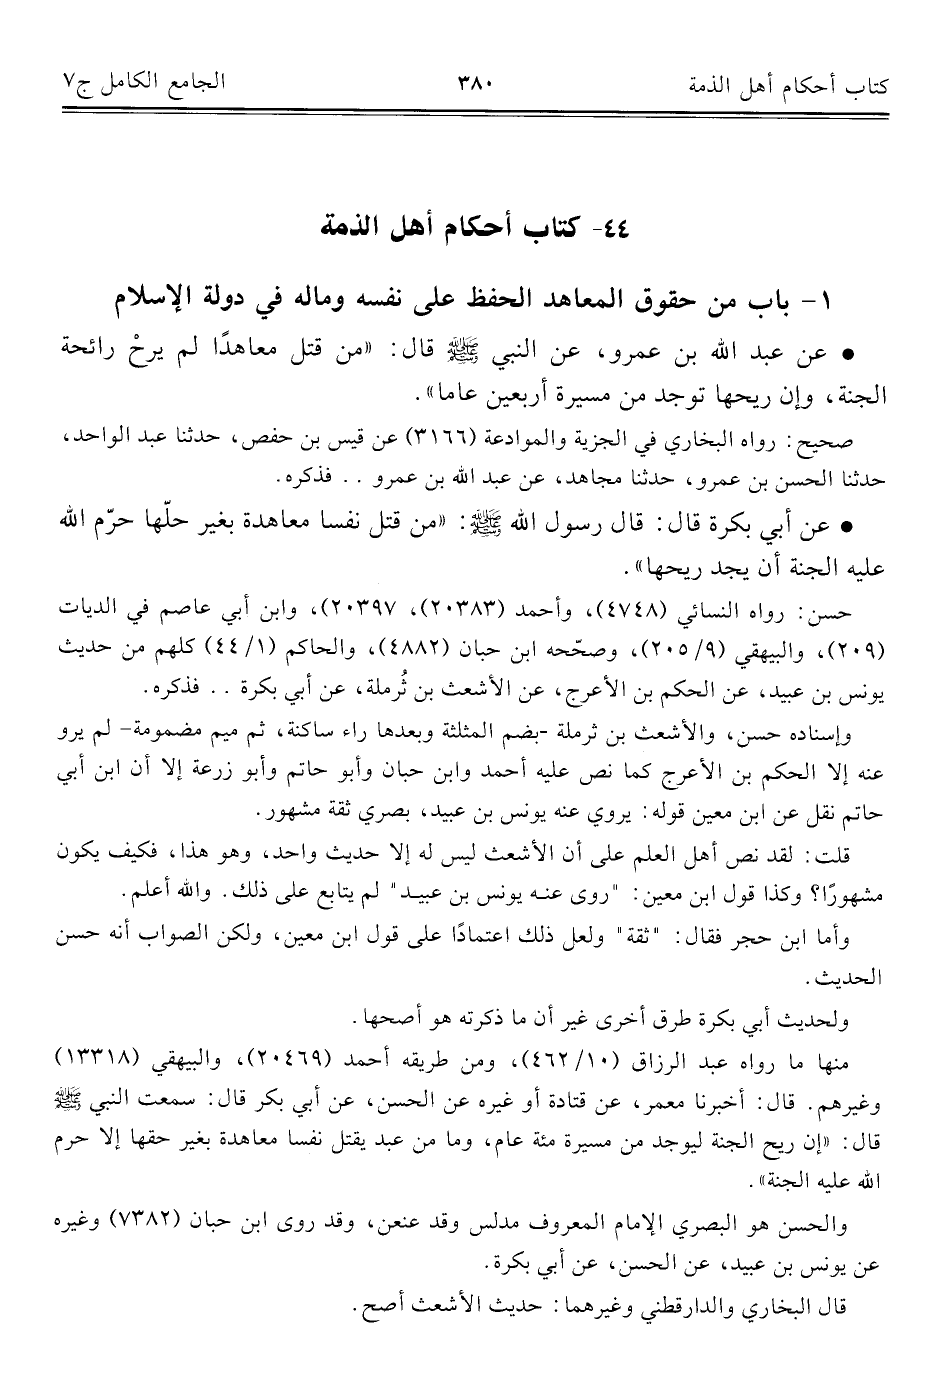 كتاب أحكام أهل الذمة ٣٨٠ الجامع الكامل ج٧
٤٤- كتاب أحكام أهل الذمة
١- باب من حقوق المعاهد الحفظ على نفسه وماله في دولة الإسلام
● عن عبد الله بن عمرو، عن النبي ﷺ قال: «من قتل معاهدًا لم يرحْ رائحة
الجنة، وإن ريحها توجد من مسيرة أربعين عاما».
صحيح: رواه البخاري في الجزية والموادعة (٣١٦٦) عن قيس بن حفص، حدثنا عبد الواحد،
حدثنا الحسن بن عمرو، حدثنا مجاهد، عن عبد الله بن عمرو .. فذكره.
● عن أبي بكرة قال: قال رسول الله ﷺ: «من قتل نفسا معاهدة بغير حلّها حرّم الله
عليه الجنة أن يجد ريحها».
حسن: رواه النسائي (٤٧٤٨)، وأحمد (٢٠٣٨٣)، ٢٠٣٩٧)، وابن أبي عاصم في الديات
(٢٠٩)، والبيهقي (٢٠٥/٩)، وصحّحه ابن حبان (٤٨٨٢)، والحاكم (٤٤/١) كلهم من حديث
يونس بن عبيد، عن الحكم بن الأعرج، عن الأشعث بن ثُرملة، عن أبي بكرة .. فذكره.
وإسناده حسن، والأشعث بن ثرملة -بضم المثلثة وبعدها راء ساكنة، ثم ميم مضمومة- لم يرو
عنه إلا الحكم بن الأعرج كما نص عليه أحمد وابن حبان وأبو حاتم وأبو زرعة إلا أن ابن أبي
حاتم نقل عن ابن معين قوله: يروي عنه يونس بن عبيد، بصري ثقة مشهور.
قلت: لقد نص أهل العلم على أن الأشعث ليس له إلا حديث واحد، وهو هذا، فكيف يكون
مشهورًا؟ وكذا قول ابن معين: "روى عنه يونس بن عبيد" لم يتابع على ذلك. والله أعلم.
وأما ابن حجر فقال: "ثقة" ولعل ذلك اعتمادًا على قول ابن معين، ولكن الصواب أنه حسن
الحديث.
ولحديث أبي بكرة طرق أخرى غير أن ما ذكرته هو أصحها.
منها ما رواه عبد الرزاق (٤٦٢/١٠)، ومن طريقه أحمد (٢٠٤٦٩)، والبيهقي (١٣٣١٨)
وغيرهم. قال: أخبرنا معمر، عن قتادة أو غيره عن الحسن، عن أبي بكر قال: سمعت النبي ﷺ
قال: «إن ريح الجنة ليوجد من مسيرة مئة عام، وما من عبد يقتل نفسا معاهدة بغير حقها إلا حرم
الله عليه الجنة».
والحسن هو البصري الإمام المعروف مدلس وقد عنعن، وقد روى ابن حبان (٧٣٨٢) وغيره
عن يونس بن عبيد، عن الحسن، عن أبي بكرة.
قال البخاري والدارقطني وغيرهما: حديث الأشعث أصح.